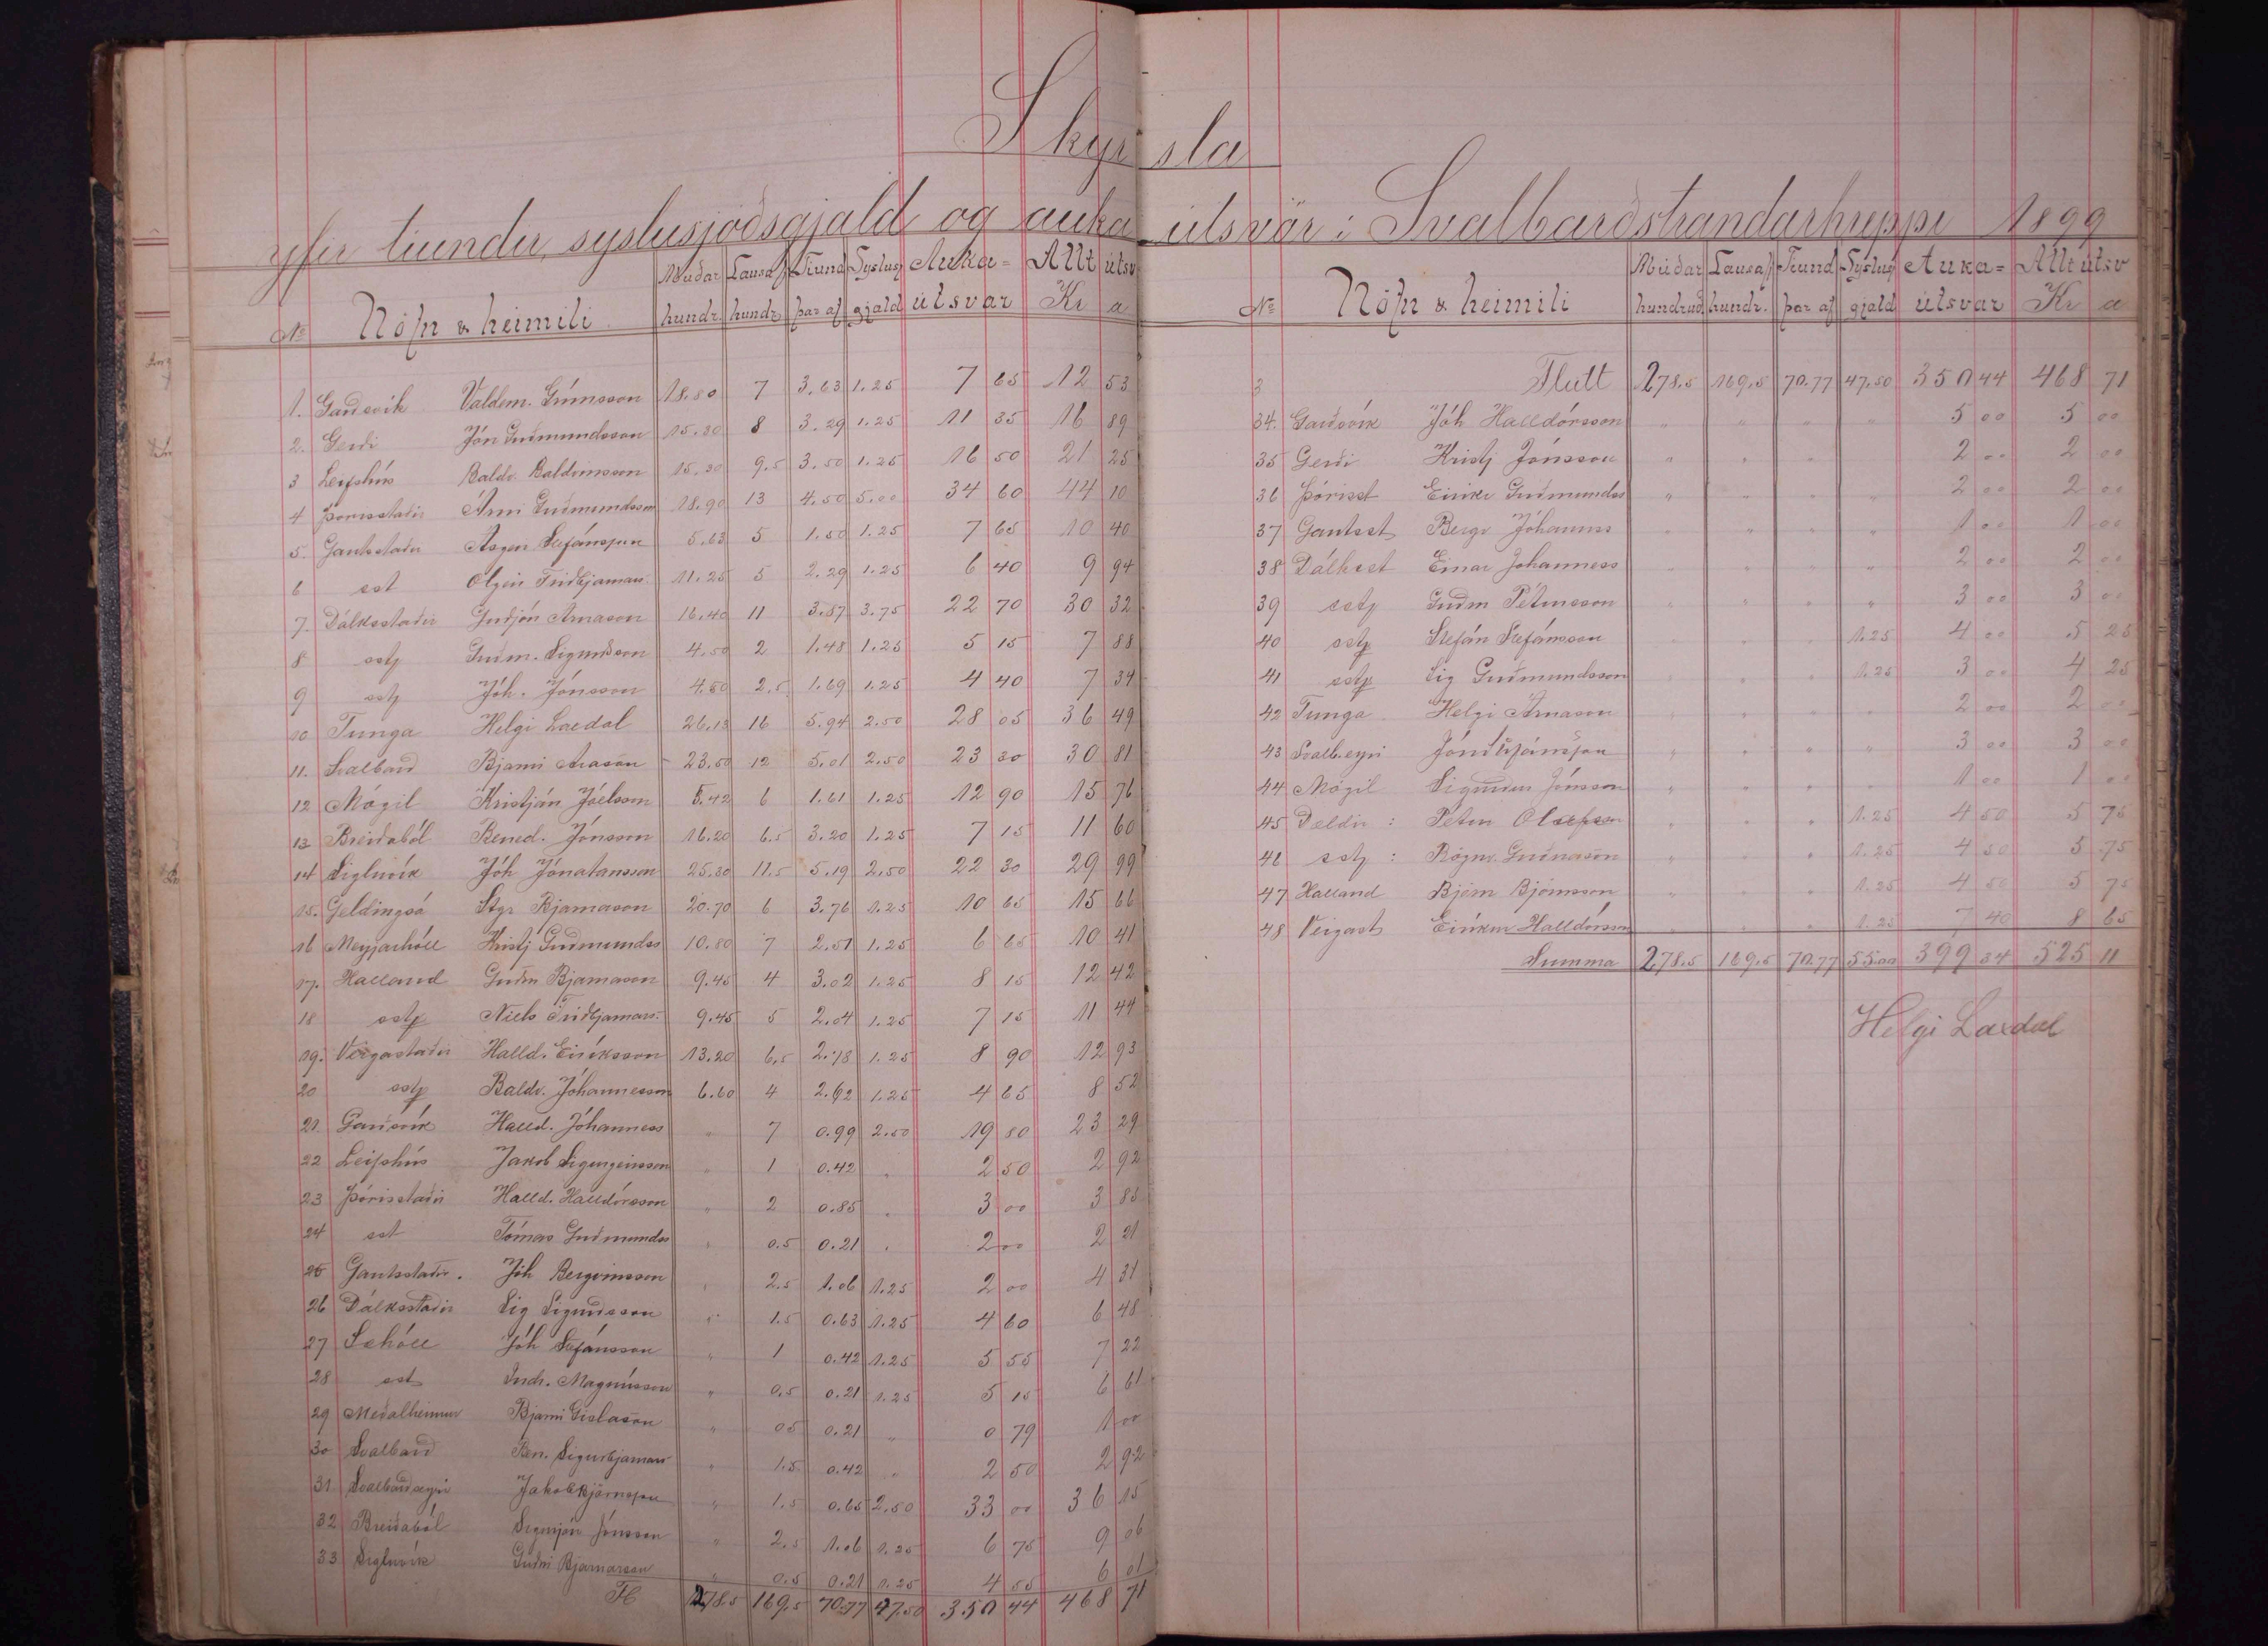 Skyrsla
yfir tiundir, syslusjóðsgjald og auka útsvör í Svalbarðstrandarhreppi 1899
No Nöfn & heimili Ábúðar hundr. Lausafj hundr. Tíund þar af Syslusj gjald Auka= útsvar Allt útsv Kr a
1. Garðsvík Valdem. Grímsson 18.80 7 3.63 1.25 7 65 12 53
2. Gerði Jón Guðmundsson 15.30 8 3.29 1.25 11 35 16 89
3 Leifshús Baldv. Baldvinsson 15.30 9.5 3.50 1.25 16 50 21 25
4 Þórisstaðir Árni Guðmundsson 18.90 13 4.50 5.00 34 60 44 10
5. Gautsstaðir Ásgeir Stefánsson 5.63 5 1.50 1.25 7 65 10 40
6 sst Olgeir Friðbjarnar. 11.25 5 2.29 1.25 6 40 9 94
7. Dálksstaðir Guðjón Árnason 16.40 11 3.87 3.75 22 70 30 32
8 sstj Guðm. Sigurðsson 4.50 2 1.48 1.25 5 15 7 88
9 sstj Jóh. Jónsson 4.50 2.5 1.69 1.25 4 40 7 34
10 Tunga Helgi Laxdal 26.13 16 5.94 2.50 28 05 36 49
11. Svalbarð Bjarni Arason 23.50 12 5.01 2.50 23 30 30 81
12 Mógil Kristján Jóelsson 5.42 6 1.61 1.25 12 90 15 76
13 Breiðaból Bened. Jónsson 16.20 6.5 3.20 1.25 7 15 11 60
14 Sigluvík Jóh Jónatansson 25.30 11.5 5.19 2.50 22 30 29 99
15. Geldingsá Styr Bjarnason 20.70 6 3.76 1.25 10 65 15 66
16 Meyjarhóll Kristj Guðmundss 10.80 7 2.51 1.25 6 65 10 41
17. Halland Guðm Bjarnason 9.45 4 3.02 1.25 8 15 12 42
18 sstj Niels Friðbjarnars. 9.45 5 2.04 1.25 7 15 11 44
19. Veigastaðir Halld. Eiríksson 13.20 6.5 2.78 1.25 8 90 12 93
20 sstj Baldv. Jóhannesson 6.60 4 2.62 1.25 4 65 8 52
21. Garðsvík Halld. Jóhanness " 7 0.99 2.50 19 80 23 29
22 Leifshús Jakob Sigurgeirsson " 1 0.42 . 2 50 2 92
23 Þórisstaðir Halld. Halldórsson " 2 0.85 . 3 00 3 85
24 sst Tómas Guðmundss " 0.5 0.21 . 2 00 2 21
25 Gautsstaðir. Jóh Bergvinsson " 2.5 1.06 1.25 2 00 4 31
26 Dálksstaðir Sig Sigurðsson " 1.5 0.63 1.25 4 60 6 48
27 Sshóll Jóh Stefánsson " 1 0.42 1.25 5 55 7 22
28 sst Indr. Magnússon " 0.5 0.21 1.25 5 15 6 61
29 Meðalheimur Bjarni Gíslason " 0.5 0.21 " 0 79 1 00
30 Svalbarð Ben. Sigurbjarnars " 1.5 0.42 " 2 50 2 92
31 Svalbarðseyri Jakob Björnsson " 1.5 0.65 2.50 33 00 36 15
32 Breiðaból Sigurjón Jónsson " 2.5 1.06 1.25 6 75 9 06
33 Sigluvík Guðni Bjarnarson " 0.5 0.21 1.25 4 55 6 01
Fl 278.5 169.5 70.77 47.50 350 44 468 71
No Nöfn & heimili Ábúðar hundruð Lausafj hundr. Tíund þar af Syslusj gjald Auka= útsvar Allt útsv Kr a
3 Flutt 278.5 169.5 70.77 47.50 350 44 468 71
34. Garðsvík Jóh Halldórsson " " " " 5 00 5 00
35 Gerði Kristj Jónsson " " " 2 00 2 00
36 Þórisst Eiríkr Guðmundss " " " " 2 00 2 00
37 Gautsst Bergv Jóhannss " " " " 1 00 1 00
38 Dálksst Einar Johanness " " " " 2 00 2 00
39 sstj Guðm Pétursson " " " " 3 00 3 00
40 sstj Stefán Stefánsson " " " 1.25 4 00 5 25
41 sstj Sig Guðmundsson " " " 1.25 3 00 4 25
42 Tunga Helgi Árnason " " " " 2 00 2 00
43 Svalb.eyri Jón Stefánsson " " " " 3 00 3 00
44 Mógil Sigurður Jónsson " " " " 1 00 1 00
45 Dældir : Petur Olafsson " " " 1.25 4 50 5 75
46 sstj : Rögnv. Guðnason " " " 1.25 4 50 5 75
47 Halland Björn Björnsson " " " 1.25 4 50 5 75
48 Veigast Eiríkur Halldórsson " " " 1.25 7 40 8 65
Summa 278.5 169.5 70.77 55.00 399 34 525 11
Helgi Laxdal